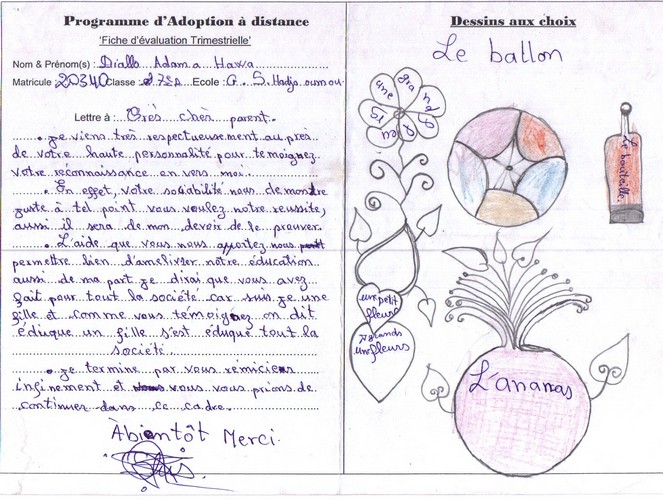 Programme d'Adoption à distance
'Fiche d'évaluation Trimestrielle'
Nom & Prénom(s) : Diallo Adama Hawa
Matricule 20340 Classe : Ecole : G. S. Hadja oumou
Lettre à : Très chès parent.
je viens très respectueusement au près
de votre haute personnalité pour temoignez
votre reconnaissance en vers moi
En effet, votre sociabilité nous demontre
juste à tel point vous voulez notre reussite,
aussi il sera de mon devoir de le prouver.
L'aide que vous nous apportez nous
permettre bien d'ameliver notre éducation
aussi de ma part je dirai que vous avez
fait pour tout la société car suis je une
fille et comme vous témoignez on dit
éduque un fille s'est éduque tout la
société
je termine par vous remiciens
infinement et vous vous prions de
continuer dans ce cadre.
Àbientôt Merci.
Dessins aux choix
Le ballon
une grand
fleur
La bouteille
un petit
fleurs
grands
unfleurs
L'ananas